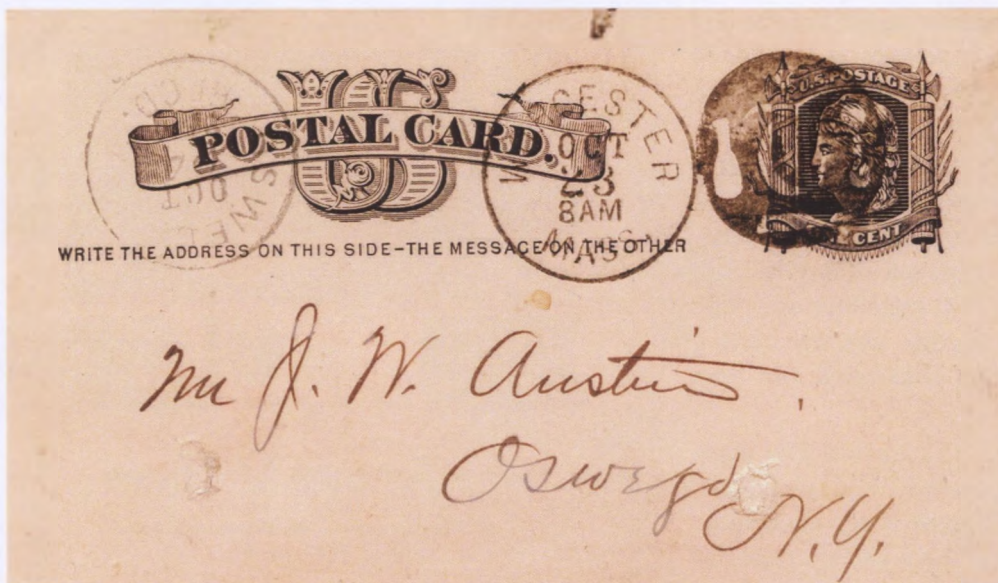 US
POSTAL CARD.
WRITE THE ADDRESS ON THIS SIDE-THE MESSAGE ON THE OTHER
WORCESTER
OCT
23
8AM
MASS.
U.S. POSTAGE
ONE CENT
OCT
Mr J. W. Austin,
Oswego
N.Y.